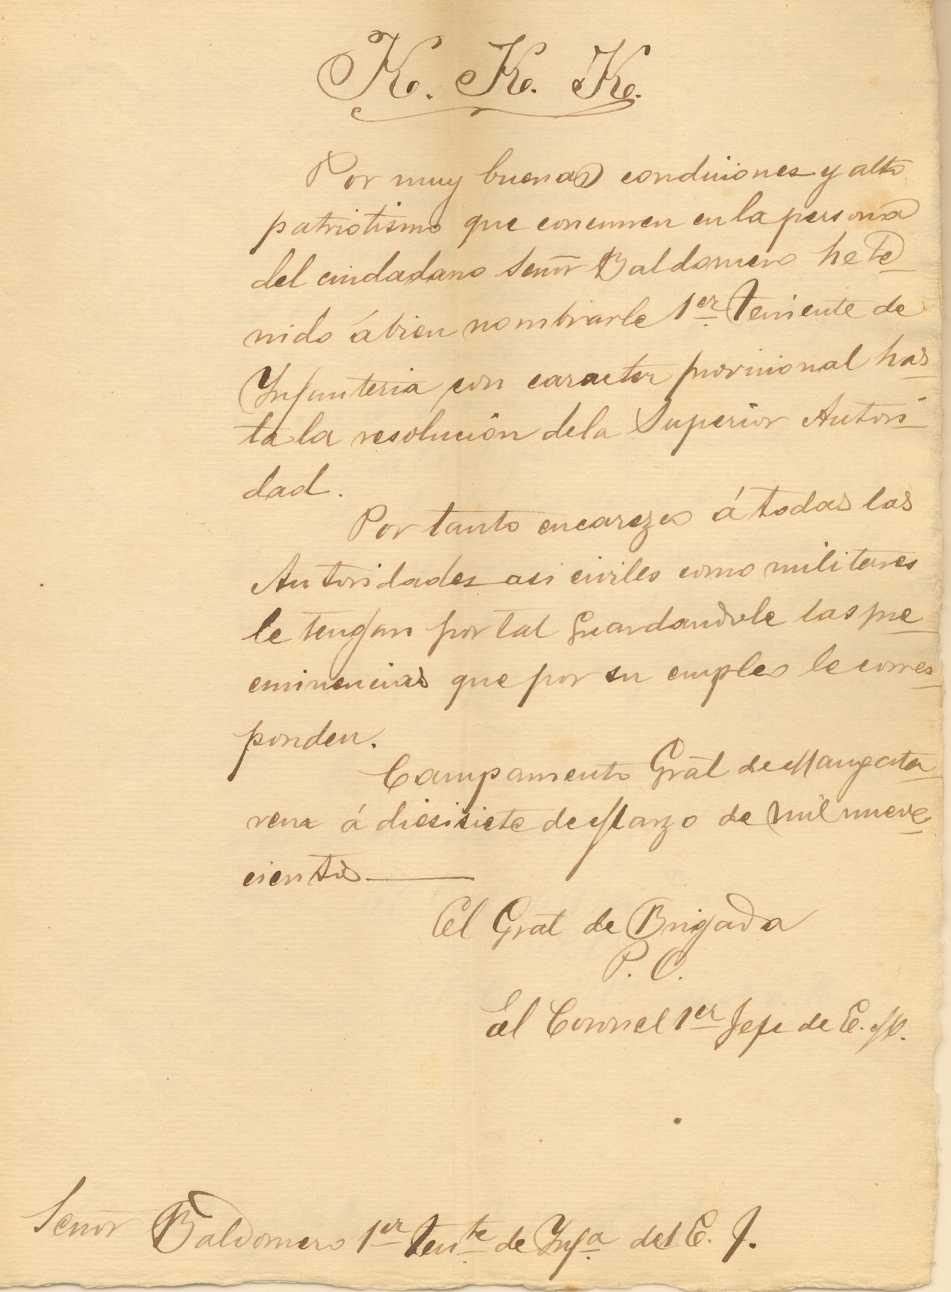 K. K. K.
Por muy buenas condiciones y alto
patriotismo que concurren en la persona
del ciudadano Señor Baldomero he te-
nido á bien nombrarle 1er Teniente de
Infanteria con caracter provicional has-
ta la resolución de la Superior Autori-
dad.
Por tanto encarezco á todas las
Autoridades asi civiles como militares
le tengan por tal guardandole las pre-
eminencias que por su empleo le corres-
ponden.
Campamento Gral de Mangata-
rem á diesisiete de Marzo de mil nueve-
cientos
El Gral de Brigada
P. O.
El Coronel 1er Jefe de E. M.
Señor Baldomero 1er Tente de Infa del E. F.